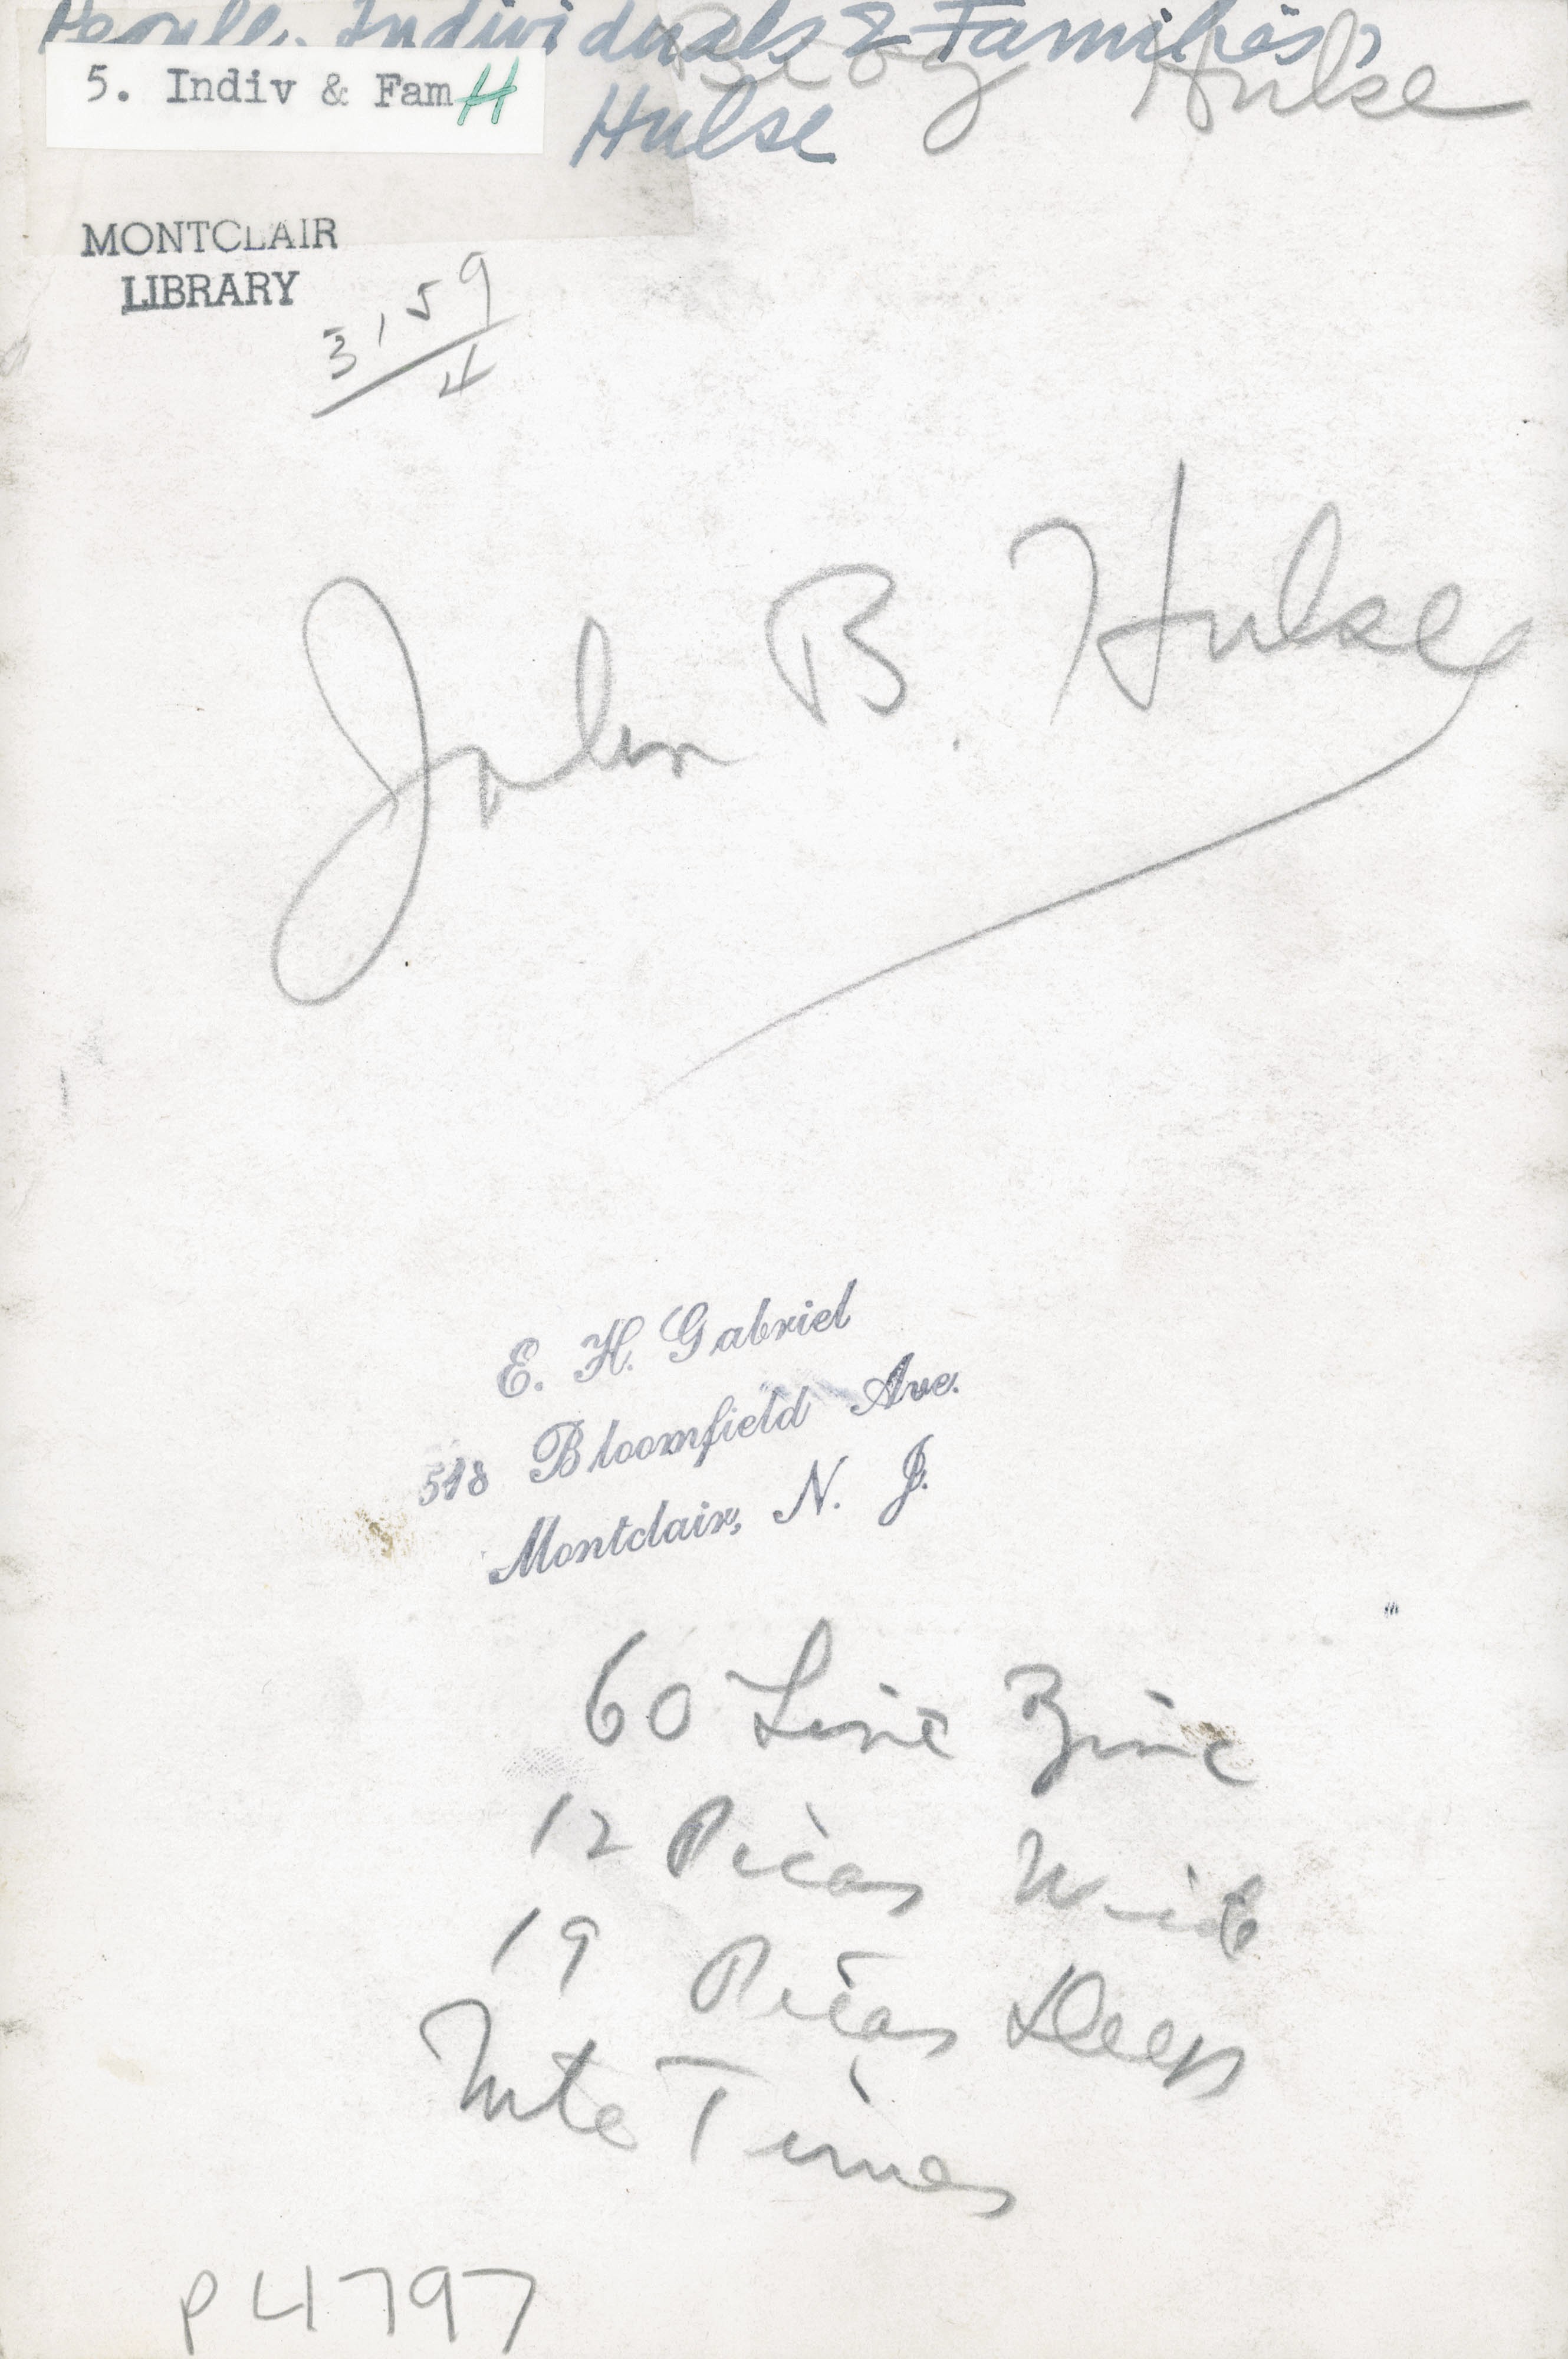 People, Individuals & Families,
Hulse
Hulse
5. Indiv & Fam H
MONTCLAIR
LIBRARY
3,59
4
John B. Hulse
E. H. Gabriel
518 Bloomfield Ave.
Montclair, N. J.
60 Line Zinc
12 Picas Wide
19 Picas Deep
Mte Times
P4797